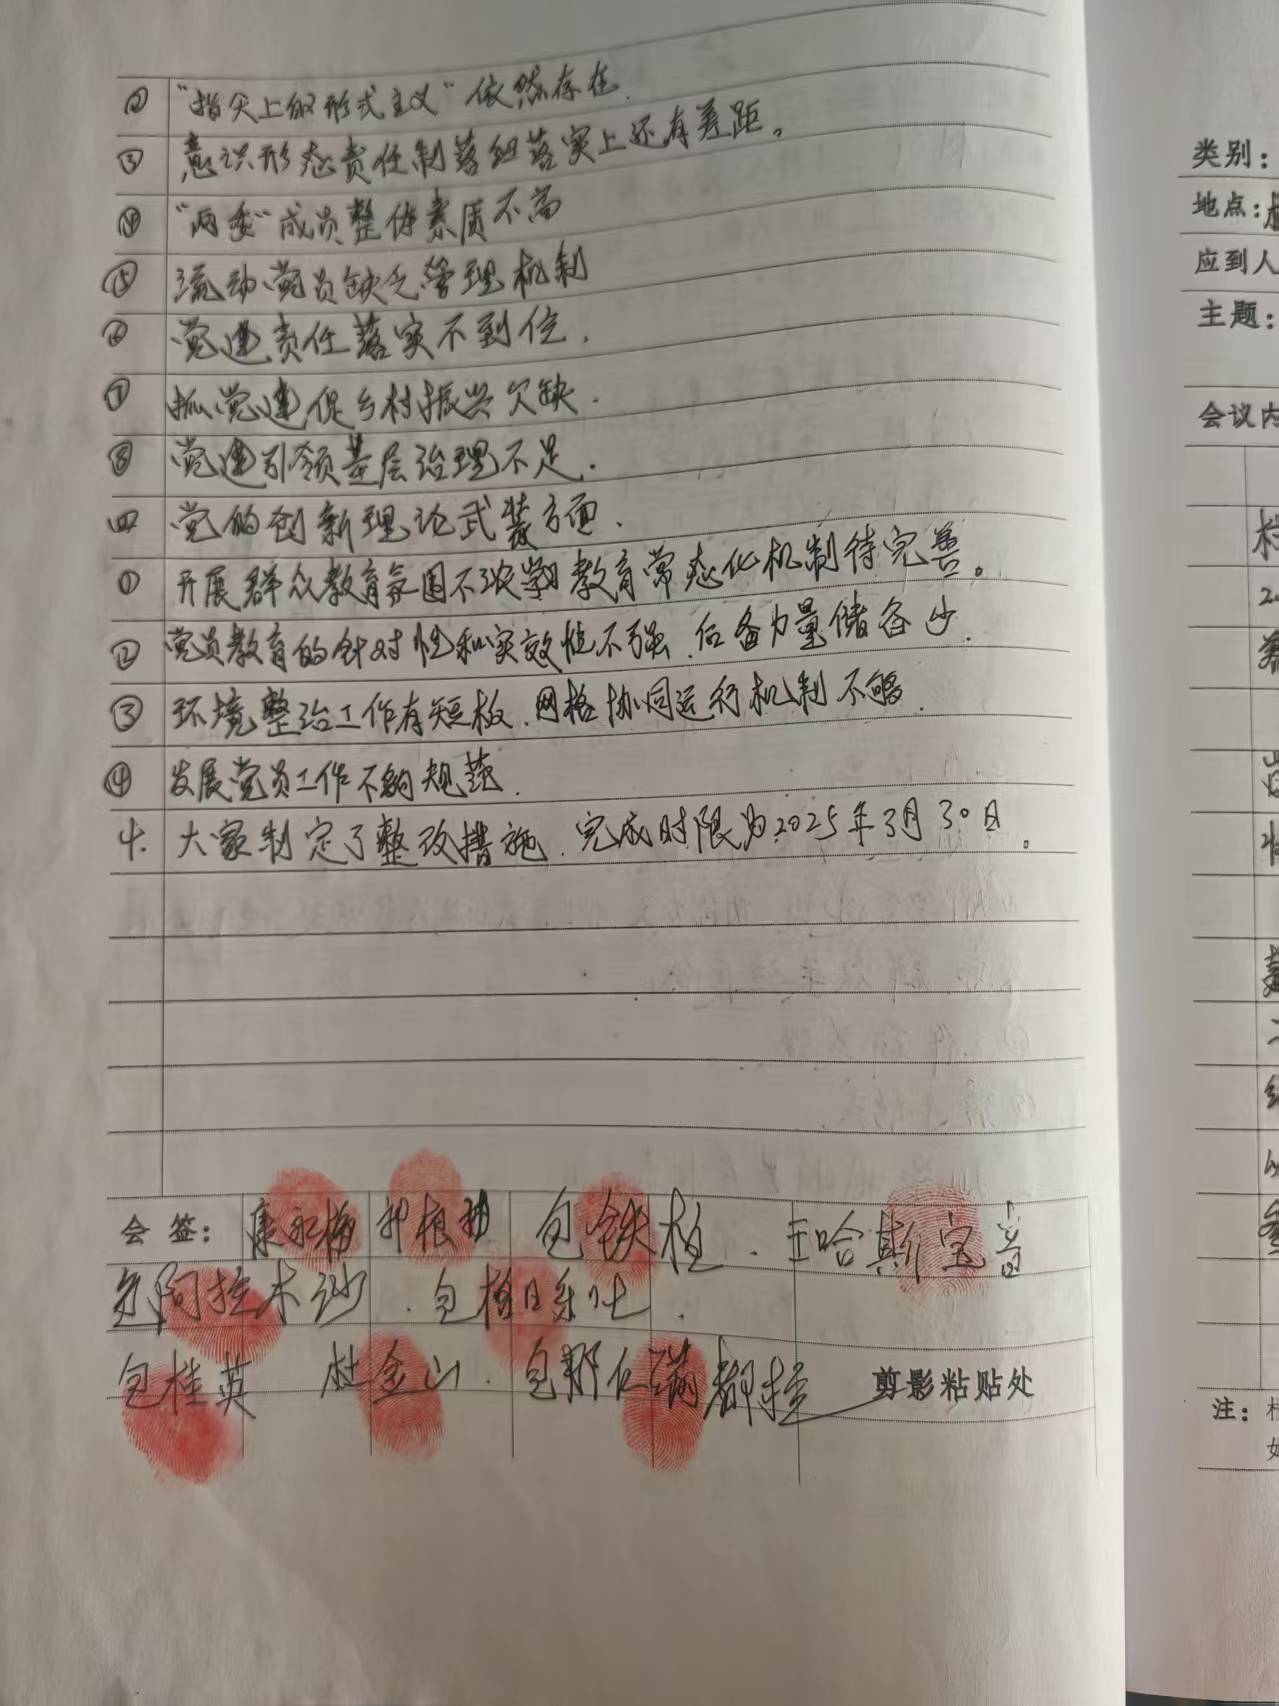 ② "指尖上的形式主义"依然存在.
③ 意识形态责任制落细落实上还有差距。
④ "两委"成员整体素质不高
⑤ 流动党员缺乏管理机制
⑥ 党建责任落实不到位.
⑦ 抓党建促乡村振兴欠缺.
⑧ 党建引领基层治理不足.
四 党的创新理论武装方面.
① 开展群众教育氛围不浓 教育常态化机制待完善。
② 党员教育的针对性和实效性不强.后备力量储备少.
③ 环境整治工作有短板.网格协同运行机制不够.
④ 发展党员工作不够规范.
4. 大家制定了整改措施.完成时限为2025年3月30日。
会 签: 康永梅 包铁柱.王哈斯宝音
包阿拉木沙.包格日乐吐.
包桂英 杜金山.包那仁满都拉
剪影粘贴处
类别:
地点:
应到人
主题:
会议内
注: